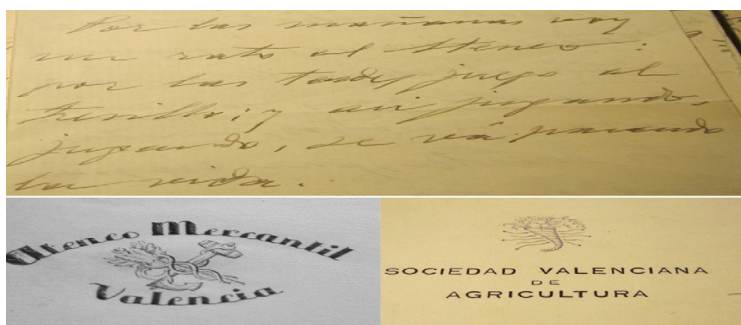 Por las mañanas voy
un rato al Ateneo:
por las tardes juego al
tresillo; y así jugando,
jugando, se vá pasando
la vida.
Ateneo Mercantil
Valencia
SOCIEDAD VALENCIANA
DE
AGRICULTURA